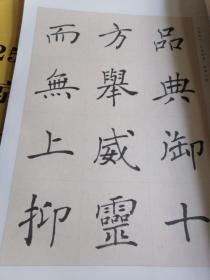 品典御十
方舉威靈
而無上抑